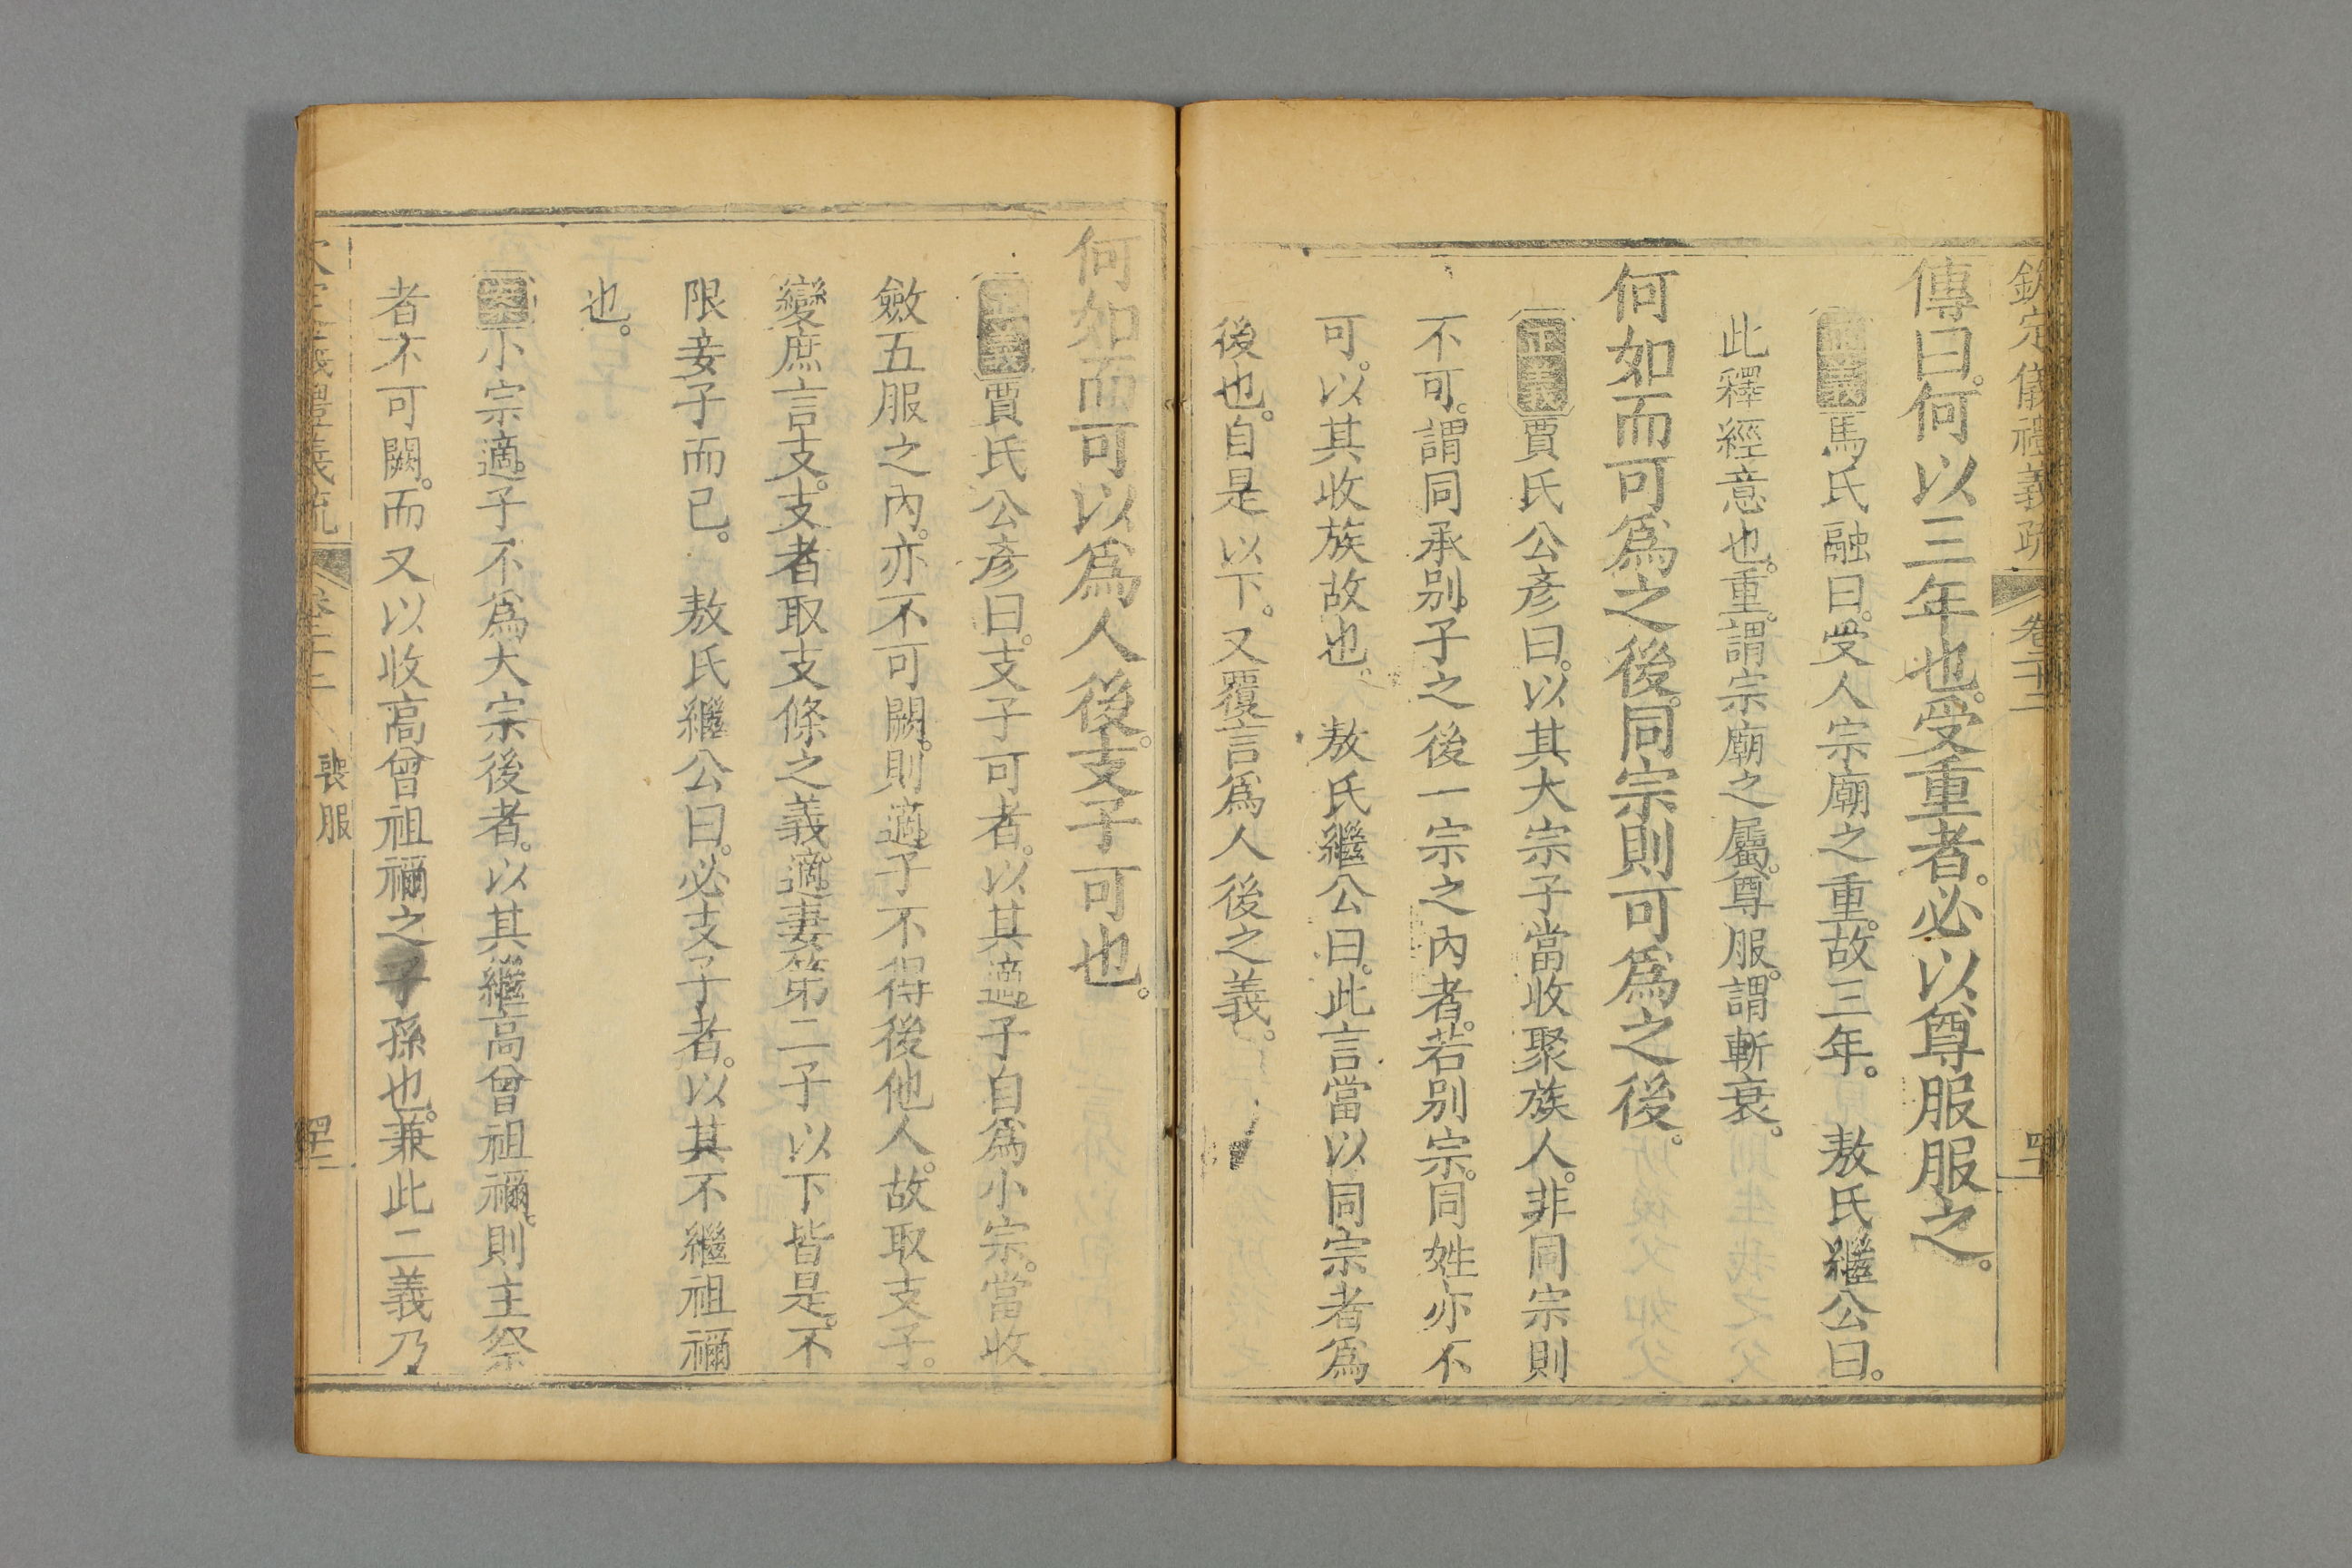 欽定儀禮義疏 卷二十二
傳曰。何以三年也。受重者。必以尊服服之。
正義馬氏融曰。受人宗廟之重。故三年。 敖氏繼公曰。
此釋經意也。重。謂宗廟之屬。尊服。謂斬衰。
何如而可爲之後。同宗則可爲之後。
正義賈氏公彥曰。以其大宗子當收聚族人。非同宗則
不可。謂同承別子之後一宗之內者。若別宗。同姓亦不
可。以其收族故也。 敖氏繼公曰。此言當以同宗者爲
後也。自是以下。又覆言爲人後之義。
何如而可以爲人後。支子可也。
正義賈氏公彥曰。支子可者。以其適子自爲小宗。當收
斂五服之內。亦不可闕。則適子不得後他人。故取支子。
變庶言支。支者取支條之義。適妻第二子以下皆是。不
限妾子而已。 敖氏繼公曰。必支子者。以其不繼祖禰
也。
小宗適子不爲大宗後者。以其繼高曾祖禰。則主祭
者不可闕。而又以收高曾祖禰之子孫也。兼此二義乃
喪服